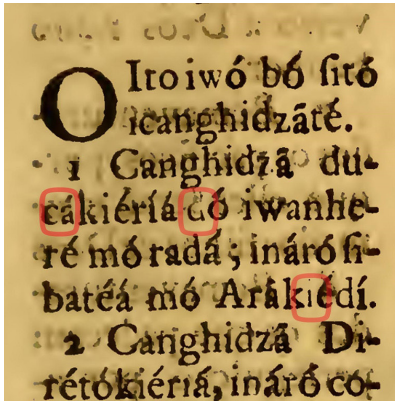 OItoiwó bó ſitó
icanghidzãté.
1 Canghidzã du-
cákiériá dó iwanhe-
ré mó radá; ináró ſi-
batéá mó Arákiédí.
2 Canghidzã Di-
rétókiériá, ináró co-